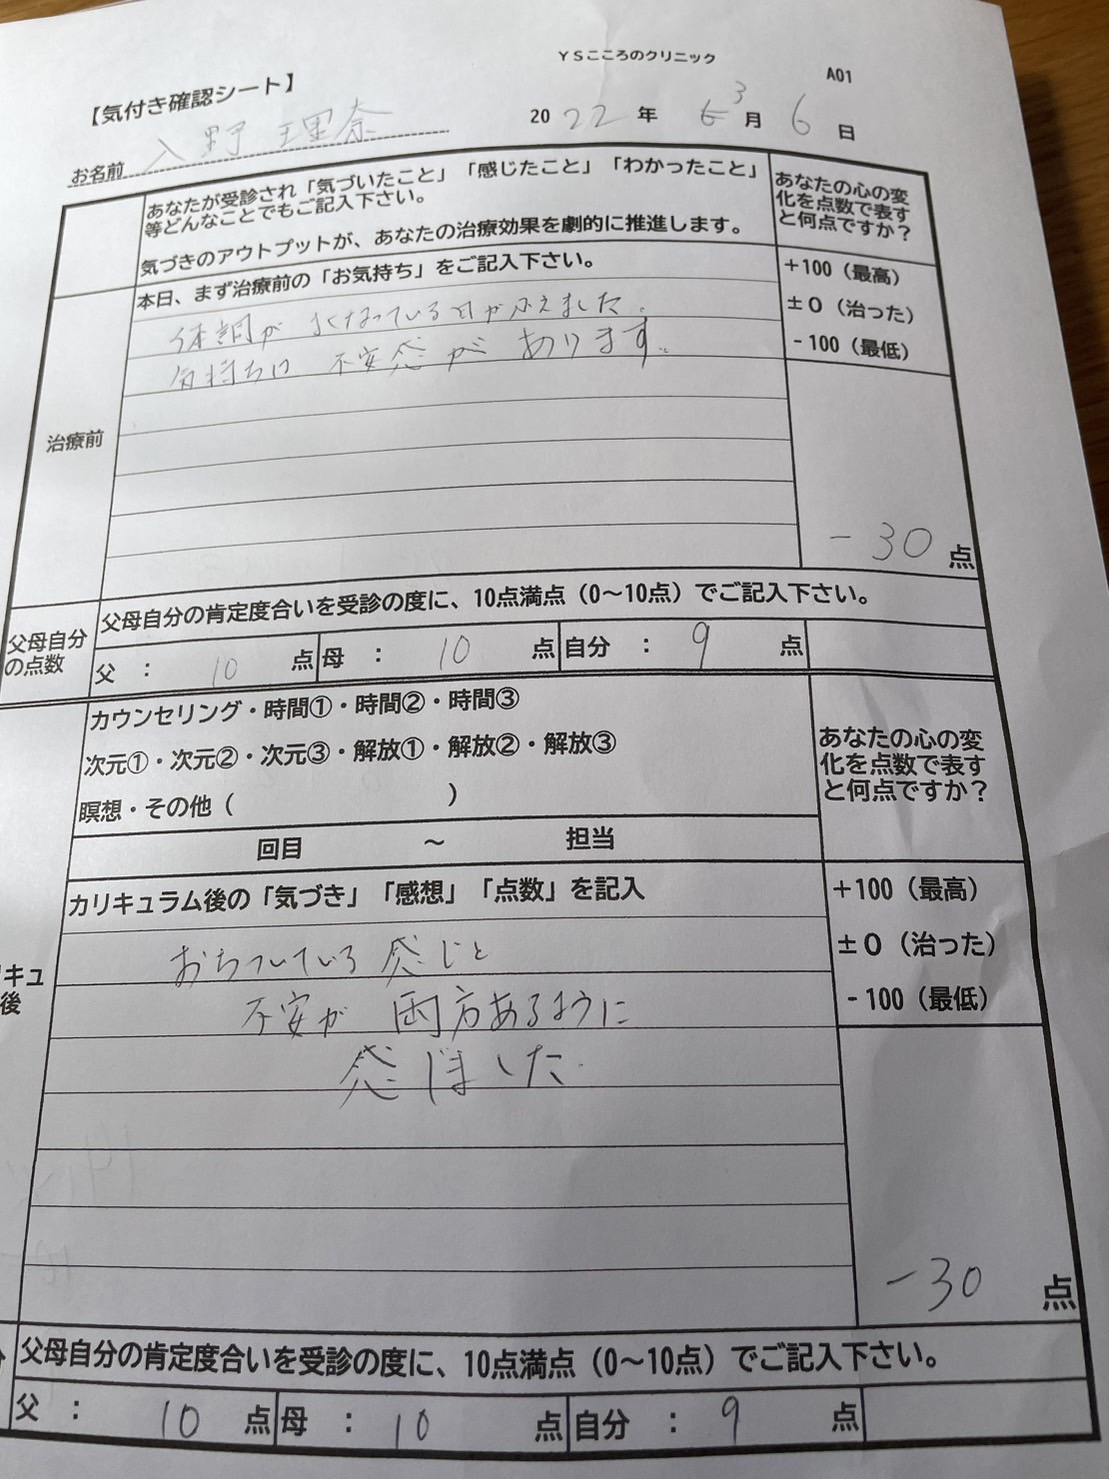 YSこころのクリニック
A01
【気付き確認シート】
2022年 3月 6日
お名前 入野 理奈
あなたが受診され「気づいたこと」「感じたこと」「わかったこと」
等どんなことでもご記入下さい。
気づきのアウトプットが、あなたの治療効果を劇的に推進します。
あなたの心の変
化を点数で表す
と何点ですか？
本日、まず治療前の「お気持ち」をご記入下さい。
+100（最高）
±0（治った）
-100（最低）
治療前
体調が よくなっている日がふえました。
気持ちは 不安感が あります。
-30 点
父母自分
の点数
父母自分の肯定度合いを受診の度に、10点満点（0〜10点）でご記入下さい。
父 ： 10 点 母 ： 10 点 自分 ： 9 点
カウンセリング・時間①・時間②・時間③
次元①・次元②・次元③・解放①・解放②・解放③
瞑想・その他（ ）
あなたの心の変
化を点数で表す
と何点ですか？
回目 〜 担当
カリキュラム後の「気づき」「感想」「点数」を記入
+100（最高）
±0（治った）
-100（最低）
キュ
後
おちついている 感じと
不安が 両方あるように
感じました。
-30 点
父母自分の肯定度合いを受診の度に、10点満点（0〜10点）でご記入下さい。
父 ： 10 点 母 ： 10 点 自分 ： 9 点